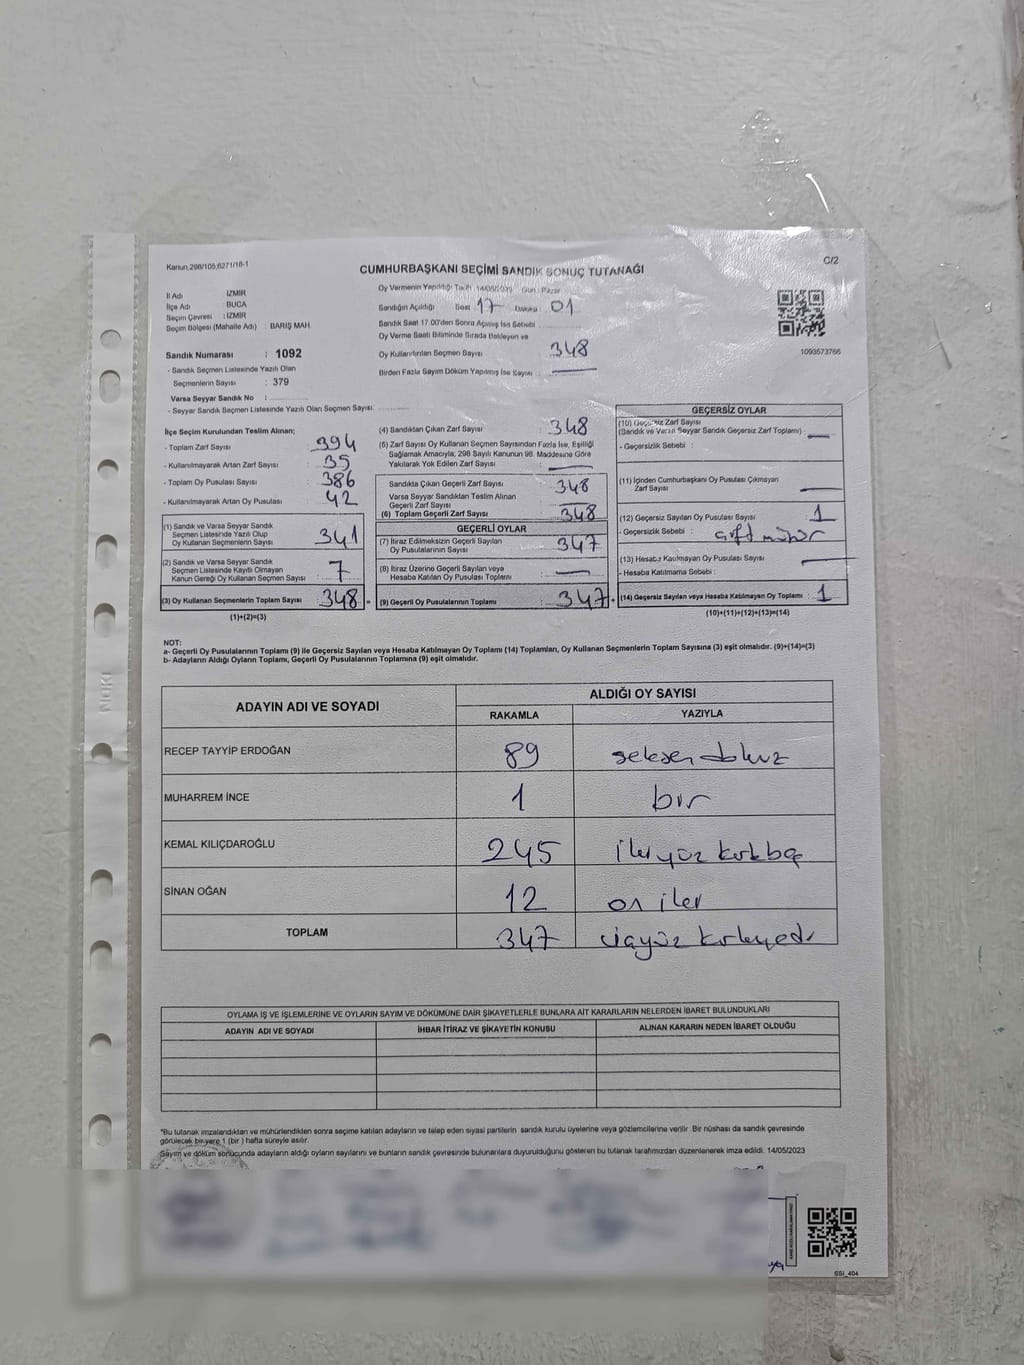 Kanun;298/105,6271/18-1
C/2
CUMHURBAŞKANI SEÇİMİ SANDIK SONUÇ TUTANAĞI
İl Adı İZMİR
İlçe Adı BUCA
Seçim Çevresi : İZMİR
Seçim Bölgesi (Mahalle Adı) : BARIŞ MAH.
Oy Vermenin Yapıldığı Tarih 14/05/2023 Gün : Pazar
Sandığın Açıldığı Saat 17 Dakika 01
Sandık Saat 17.00'den Sonra Açılmış İse Sebebi
Oy Verme Saati Bitiminde Sırada Bekleyen ve
Oy Kullandırılan Seçmen Sayısı 348
Birden Fazla Sayım Döküm Yapılmış İse Sayısı :
1093573766
Sandık Numarası : 1092
- Sandık Seçmen Listesinde Yazılı Olan
Seçmenlerin Sayısı : 379
Varsa Seyyar Sandık No :
- Seyyar Sandık Seçmen Listesinde Yazılı Olan Seçmen Sayısı:
İlçe Seçim Kurulundan Teslim Alınan;
- Toplam Zarf Sayısı 394
- Kullanılmayarak Artan Zarf Sayısı 35
- Toplam Oy Pusulası Sayısı 386
- Kullanılmayarak Artan Oy Pusulası 42
(1) Sandık ve Varsa Seyyar Sandık
Seçmen Listesinde Yazılı Olup
Oy Kullanan Seçmenlerin Sayısı 341
(2) Sandık ve Varsa Seyyar Sandık
Seçmen Listesinde Kayıtlı Olmayan
Kanun Gereği Oy Kullanan Seçmen Sayısı 7
(3) Oy Kullanan Seçmenlerin Toplam Sayısı 348
(1)+(2)=(3)
(4) Sandıktan Çıkan Zarf Sayısı 348
(5) Zarf Sayısı Oy Kullanan Seçmen Sayısından Fazla İse, Eşitliği
Sağlamak Amacıyla, 298 Sayılı Kanunun 98. Maddesine Göre
Yakılarak Yok Edilen Zarf Sayısı
Sandıkta Çıkan Geçerli Zarf Sayısı 348
Varsa Seyyar Sandıktan Teslim Alınan
Geçerli Zarf Sayısı
(6) Toplam Geçerli Zarf Sayısı 348
GEÇERLİ OYLAR
(7) İtiraz Edilmeksizin Geçerli Sayılan
Oy Pusulalarının Sayısı 347
(8) İtiraz Üzerine Geçerli Sayılan veya
Hesaba Katılan Oy Pusulası Toplamı
(9) Geçerli Oy Pusulalarının Toplamı : 347
GEÇERSİZ OYLAR
(10) Geçersiz Zarf Sayısı
(Sandık ve Varsa Seyyar Sandık Geçersiz Zarf Toplamı)
- Geçersizlik Sebebi :
(11) İçinden Cumhurbaşkanı Oy Pusulası Çıkmayan
Zarf Sayısı
(12) Geçersiz Sayılan Oy Pusulası Sayısı 1
- Geçersizlik Sebebi : çift mühür
(13) Hesaba Katılmayan Oy Pusulası Sayısı
- Hesaba Katılmama Sebebi :
(14) Geçersiz Sayılan veya Hesaba Katılmayan Oy Toplamı : 1
(10)+(11)+(12)+(13)=(14)
NOT:
a- Geçerli Oy Pusulalarının Toplamı (9) ile Geçersiz Sayılan veya Hesaba Katılmayan Oy Toplamı (14) Toplamları, Oy Kullanan Seçmenlerin Toplam Sayısına (3) eşit olmalıdır. (9)+(14)=(3)
b- Adayların Aldığı Oyların Toplamı, Geçerli Oy Pusulalarının Toplamına (9) eşit olmalıdır.
ADAYIN ADI VE SOYADI
ALDIĞI OY SAYISI
RAKAMLA YAZIYLA
RECEP TAYYİP ERDOĞAN 89 seksen dokuz
MUHARREM İNCE 1 bir
KEMAL KILIÇDAROĞLU 245 ikiyüz kırkbeş
SİNAN OĞAN 12 on iki
TOPLAM 347 üçyüz kırkyedi
OYLAMA İŞ VE İŞLEMLERİNE VE OYLARIN SAYIM VE DÖKÜMÜNE DAİR ŞİKAYETLERLE BUNLARA AİT KARARLARIN NELERDEN İBARET BULUNDUKLARI
ADAYIN ADI VE SOYADI İHBAR İTİRAZ VE ŞİKAYETİN KONUSU ALINAN KARARIN NEDEN İBARET OLDUĞU
*Bu tutanak imzalandıktan ve mühürlendikten sonra seçime katılan adayların ve talep eden siyasi partilerin sandık kurulu üyelerine veya gözlemcilerine verilir. Bir nüshası da sandık çevresinde
görülecek bir yere 1 (bir) hafta süreyle asılır.
Sayım ve döküm sonucunda adayların aldığı oyların sayılarını ve bunların sandık çevresinde bulunanlara duyurulduğunu gösteren bu tutanak tarafımızdan düzenlenerek imza edildi. 14/05/2023
GSI_404